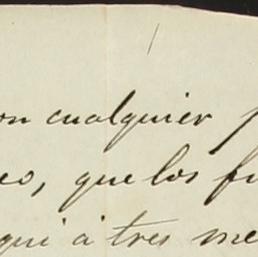 on cualquier p
eo, que los fu
qui á tres me